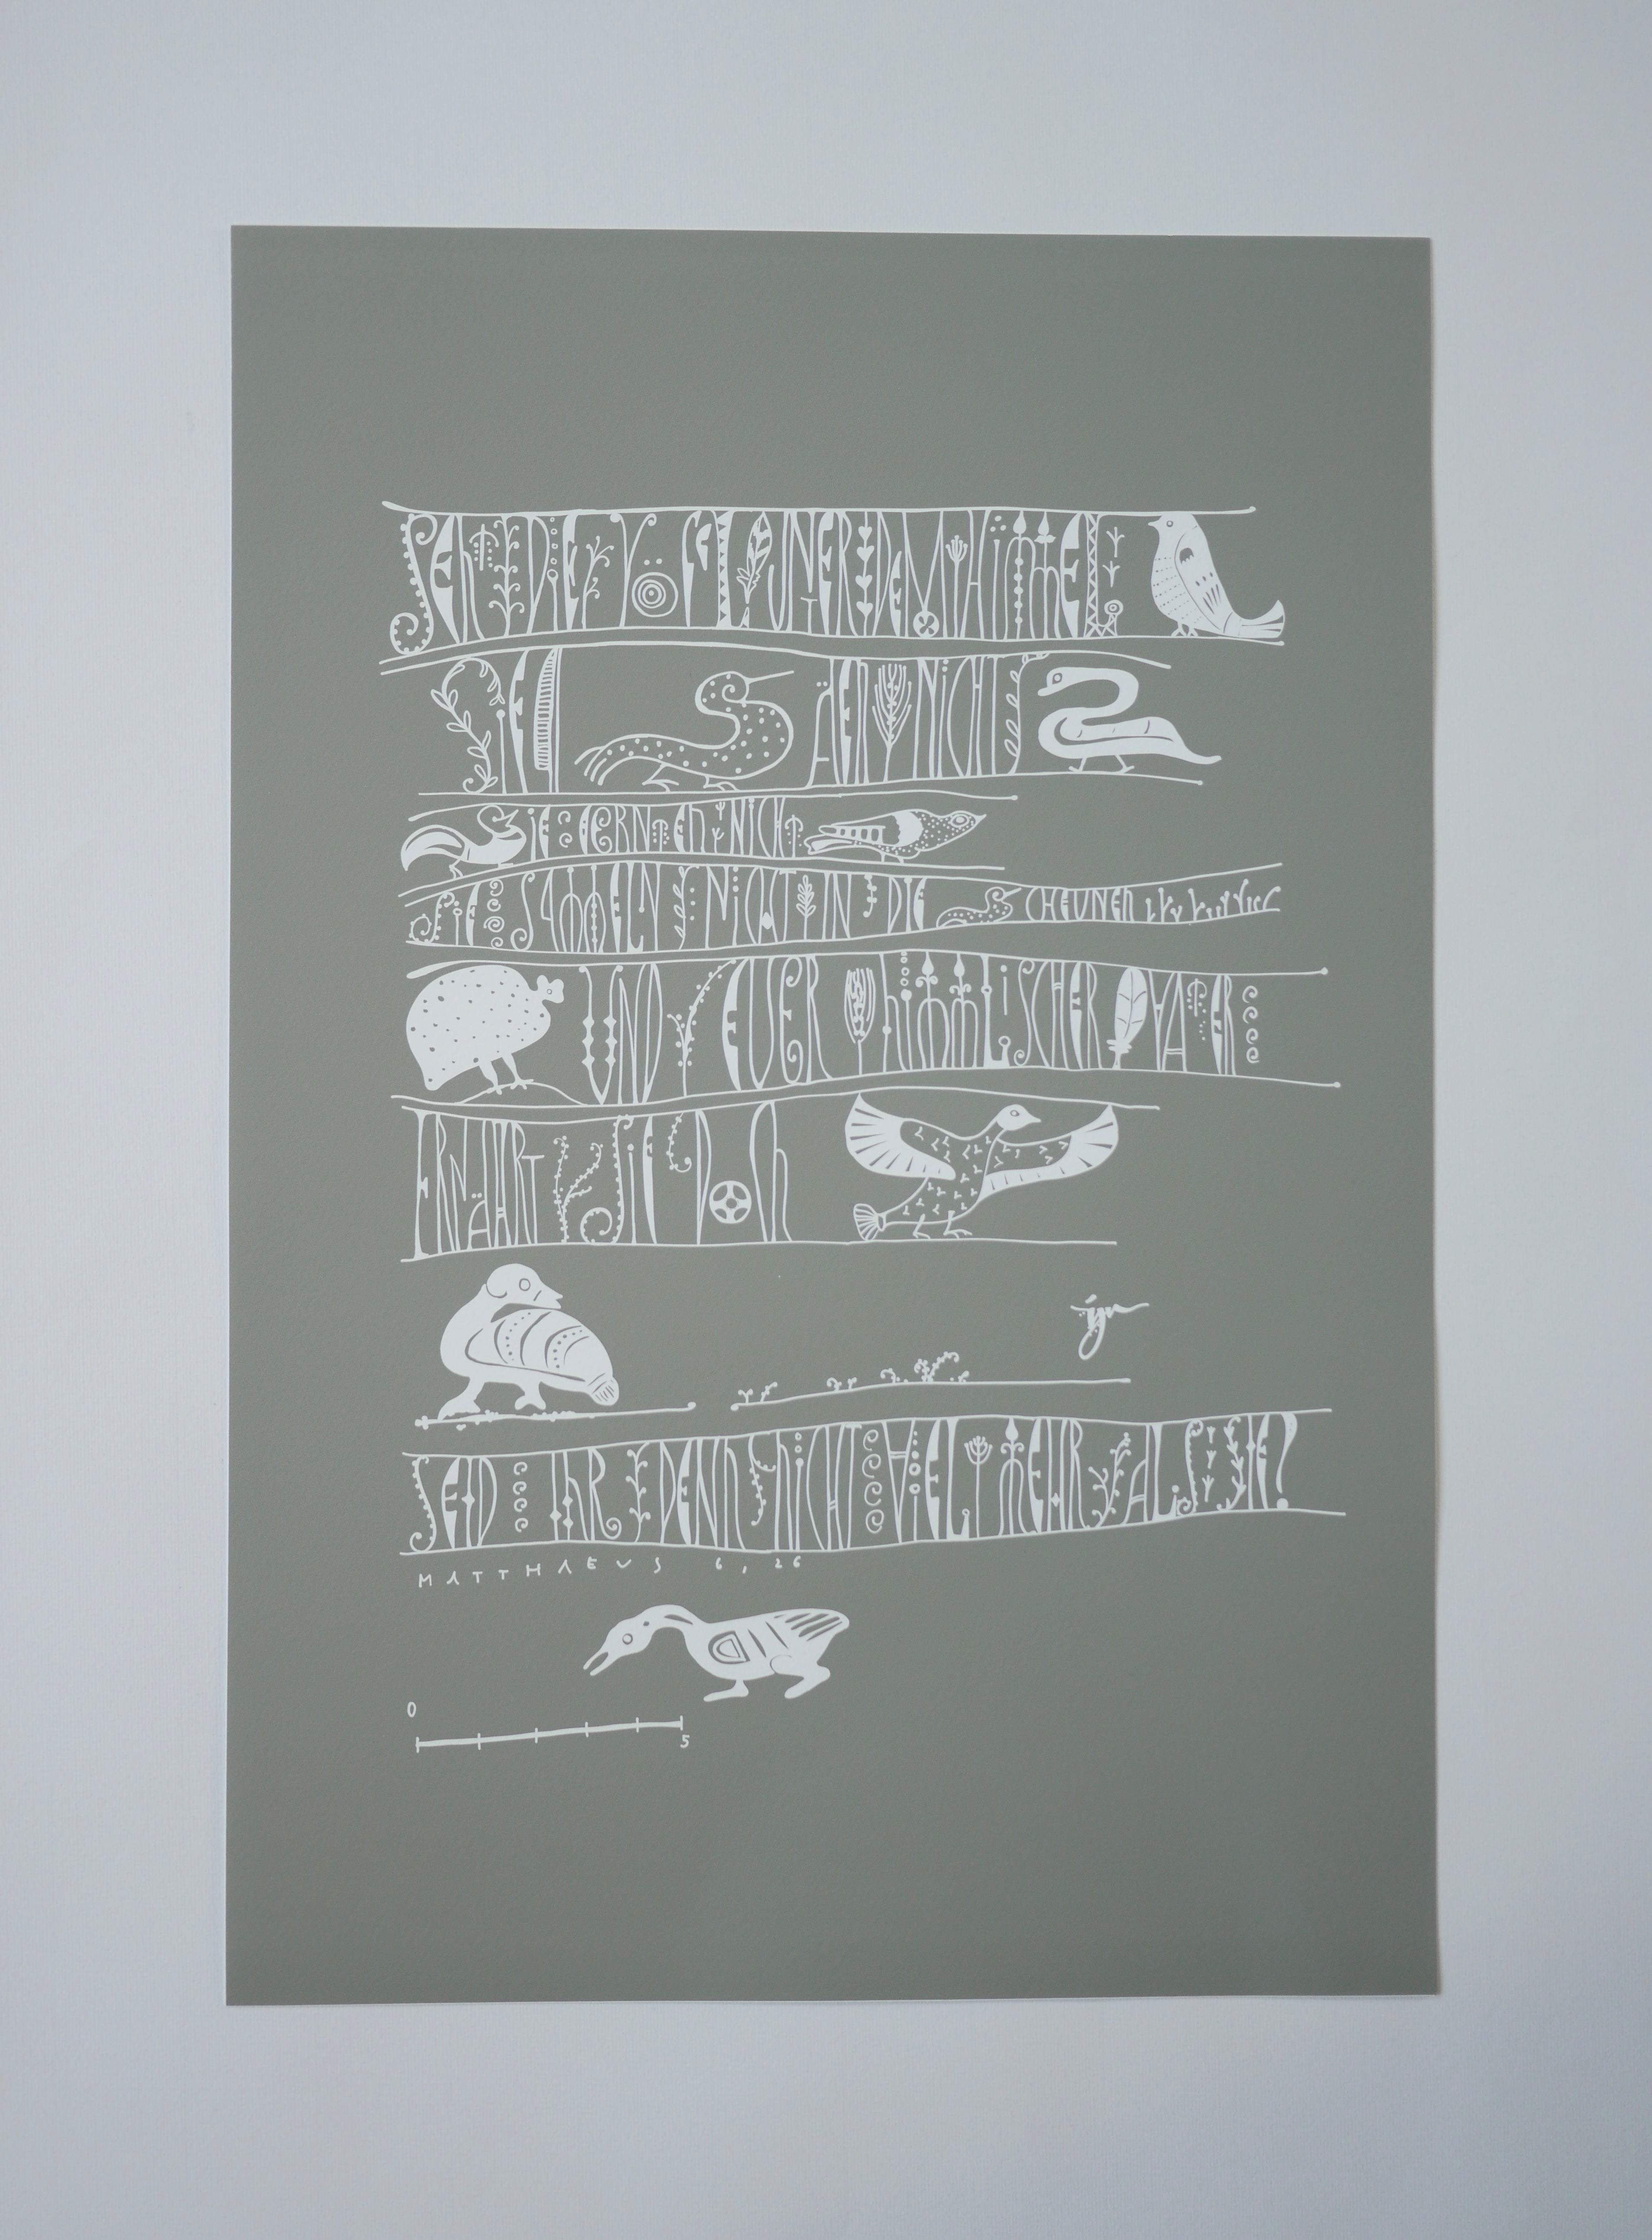 SEHT DIE VÖGEL UNTER DEM HIMMEL
SIE SÄEN NICHT
SIE ERNTEN NICHT
SIE SAMMELN NICHT IN DIE SCHEUNEN
UND EUER HIMMLISCHER VATER
ERNÄHRT SIE DOCH
SEID IHR DENN NICHT VIEL MEHR ALS SIE?
MATTHAEUS 6, 26
0
5